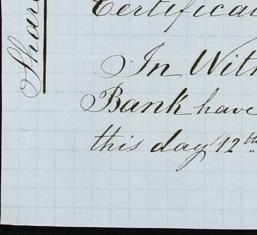 Share
Certifica
In Wit
Bank have
this day 12th